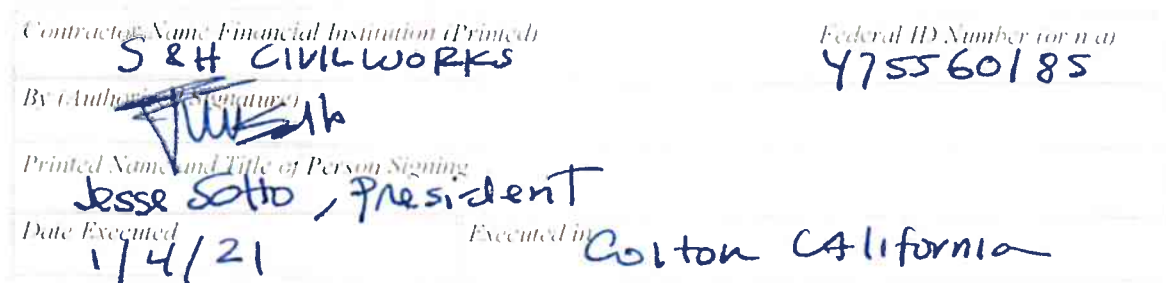 Contractor Name Financial Institution (Printed) Federal ID Number (or n a)
S & H CIVILWORKS 475560185
By (Authorized Signature)
Printed Name and Title of Person Signing
Jesse Sotto, President
Date Executed Executed in
1/4/21 Colton CAlifornia